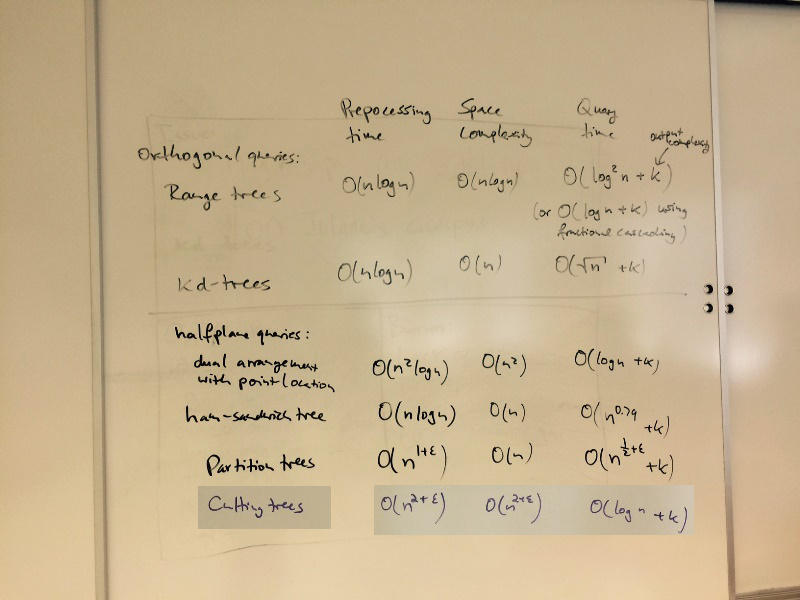 Prepocessing time Space Complexity Query time
output complexity
Orthogonal queries:
Range trees O(n log n) O(n log n) O(log² n + k)
(or O(log n + k) using
fractional cascading)
kd-trees O(n log n) O(n) O(√n + k)
halfplane queries:
dual arrangement
with point location O(n² log n) O(n²) O(log n + k)
ham-sandwich tree O(n log n) O(n) O(n^0.79 + k)
Partition trees O(n^{1+ε}) O(n) O(n^{1/2+ε} + k)
Cutting trees O(n^{2+ε}) O(n^{2+ε}) O(log n + k)